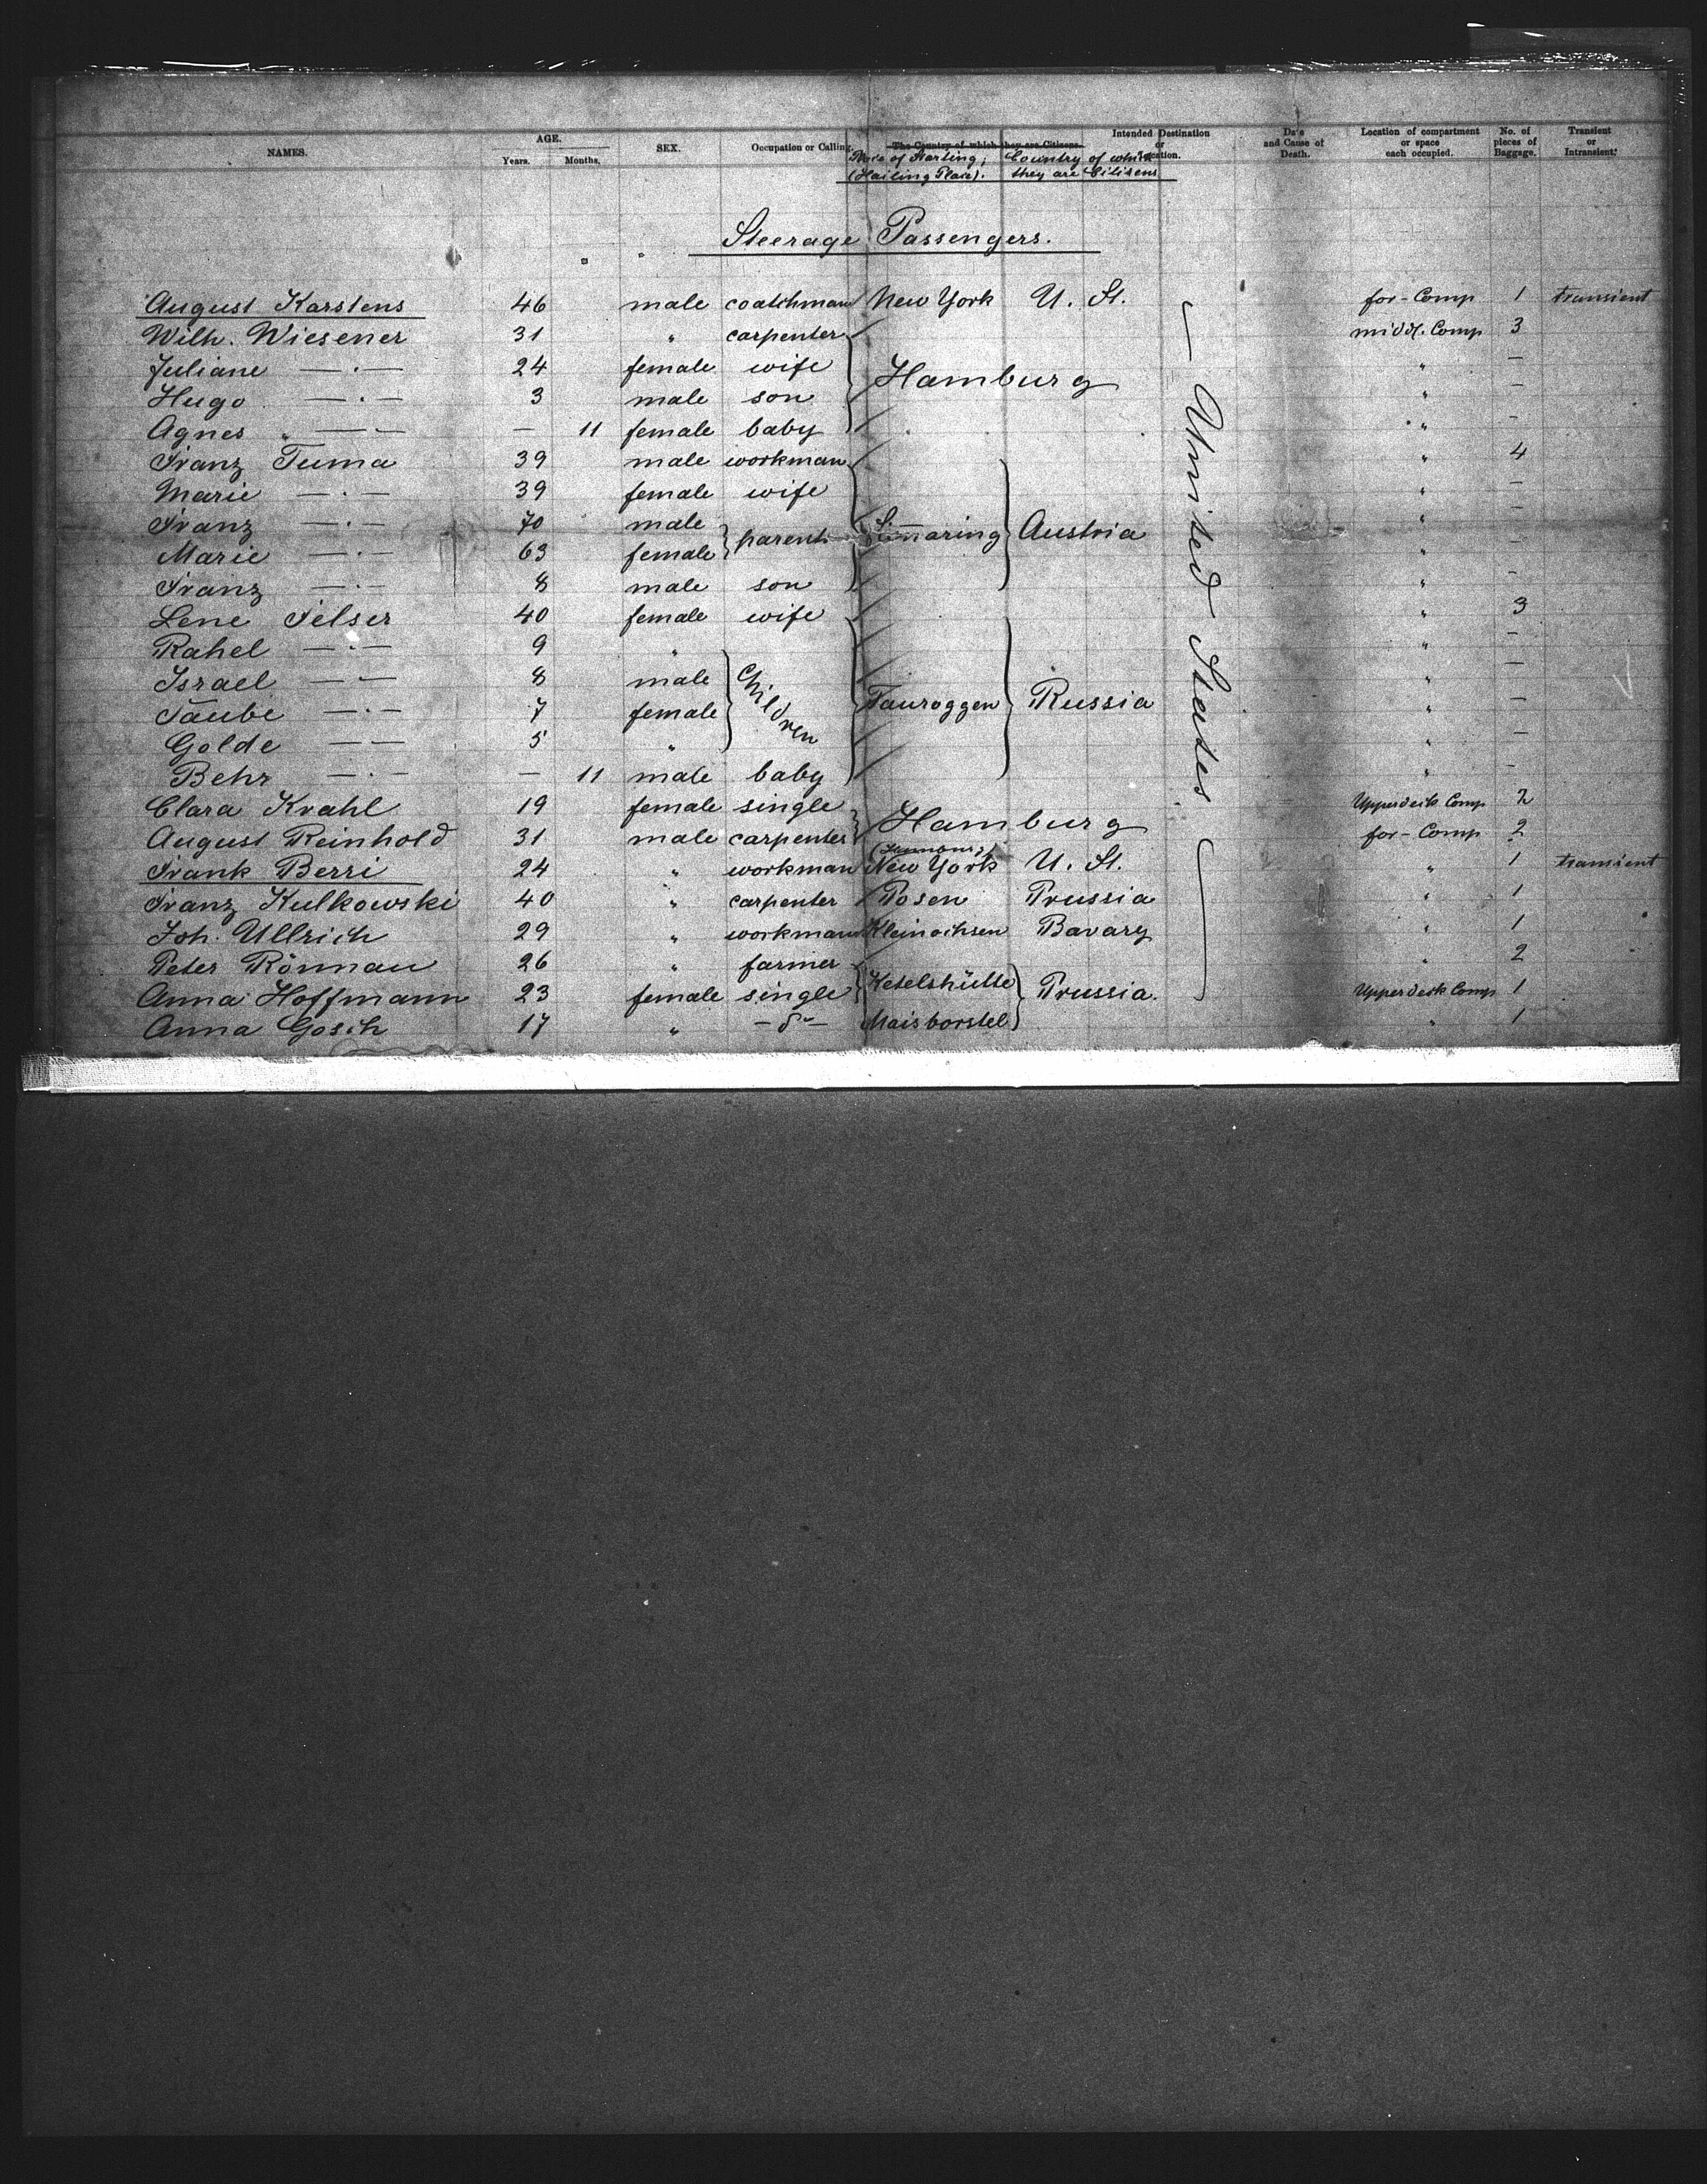 NAMES. AGE. SEX. Occupation or Calling. The Country of which they are Citizens. Intended Destination or Location. Date and Cause of Death. Location of compartment or space each occupied. No. of pieces of Baggage. Transient or Intransient.
Years. Months. Place of Starting; (Hailing Place). Country of which they are Citizens
Steerage Passengers.
August Karstens 46 male coatchman New York U. St. for-Comp 1 transient
Wilh. Wiesener 31 " carpenter middl. Comp 3
Juliane —·— 24 female wife Hamburg " —
Hugo —·— 3 male son " —
Agnes —·— — 11 female baby " —
Franz Tuma 39 male workman " 4
Marie —·— 39 female wife " —
Franz —·— 70 male parents Simmaring Austria " —
Marie —·— 63 female " —
Franz —·— 8 male son " —
Lene Felser 40 female wife " 3
Rahel —·— 9 " children " —
Israel —·— 8 male " —
Taube —·— 7 female Tauroggen Russia " —
Golde —·— 5 " " —
Behr —·— — 11 male baby " —
Clara Krahl 19 female single Hamburg Upperdeck Comp 2
August Reinhold 31 male carpenter for-Comp 2
Frank Berri 24 " workman New York U. St. " 1 transient
Franz Kulkowski 40 " carpenter Posen Prussia " 1
Joh. Ullrich 29 " workman Kleinochsen Bavary " 1
Peter Rönnau 26 " farmer " 2
Anna Hoffmann 23 female single Ketelshütte Prussia. Upperdeck Comp 1
Anna Gosch 17 " — do — Maisborstel " 1
— United States —